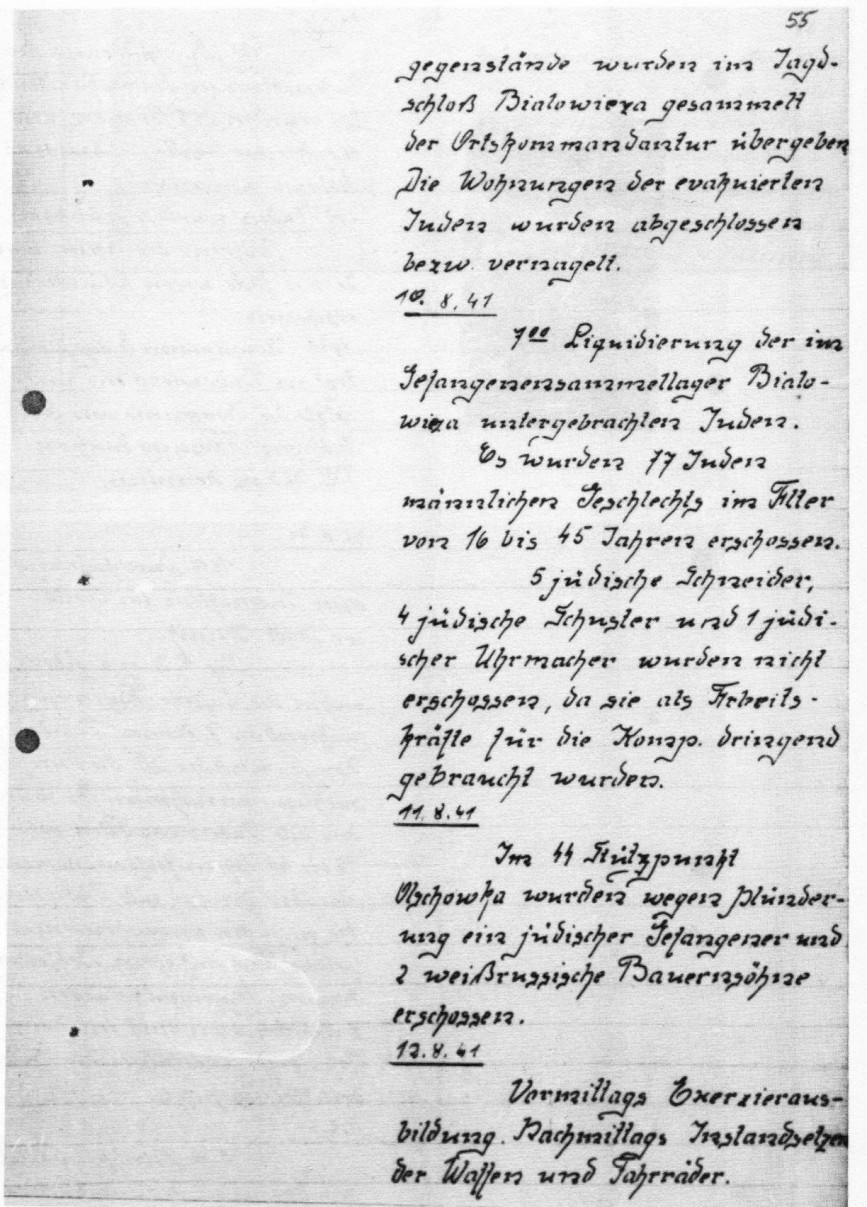 55
gegenstände wurden im Jagd-
schloß Bialowieza gesammelt
der Ortskommandantur übergeben
Die Wohnungen der evakuierten
Juden wurden abgeschlossen
bezw. vernagelt.
10. 8. 41
7⁰⁰ Liquidierung der im
Gefangenensammellager Bialo-
wieza untergebrachten Juden.
Es wurden 77 Juden
männlichen Geschlechts im Alter
von 16 bis 45 Jahren erschossen.
5 jüdische Schneider,
4 jüdische Schuster und 1 jüdi-
scher Uhrmacher wurden nicht
erschossen, da sie als Arbeits-
kräfte für die Komp. dringend
gebraucht wurden.
11. 8. 41
Im Stützpunkt
Olschowka wurden wegen Plünder-
ung ein jüdischer Gefangener und
2 weißrussische Bauernsöhne
erschossen.
12. 8. 41
Vormittags Exerzieraus-
bildung. Nachmittags Instandsetzen
der Waffen und Fahrräder.